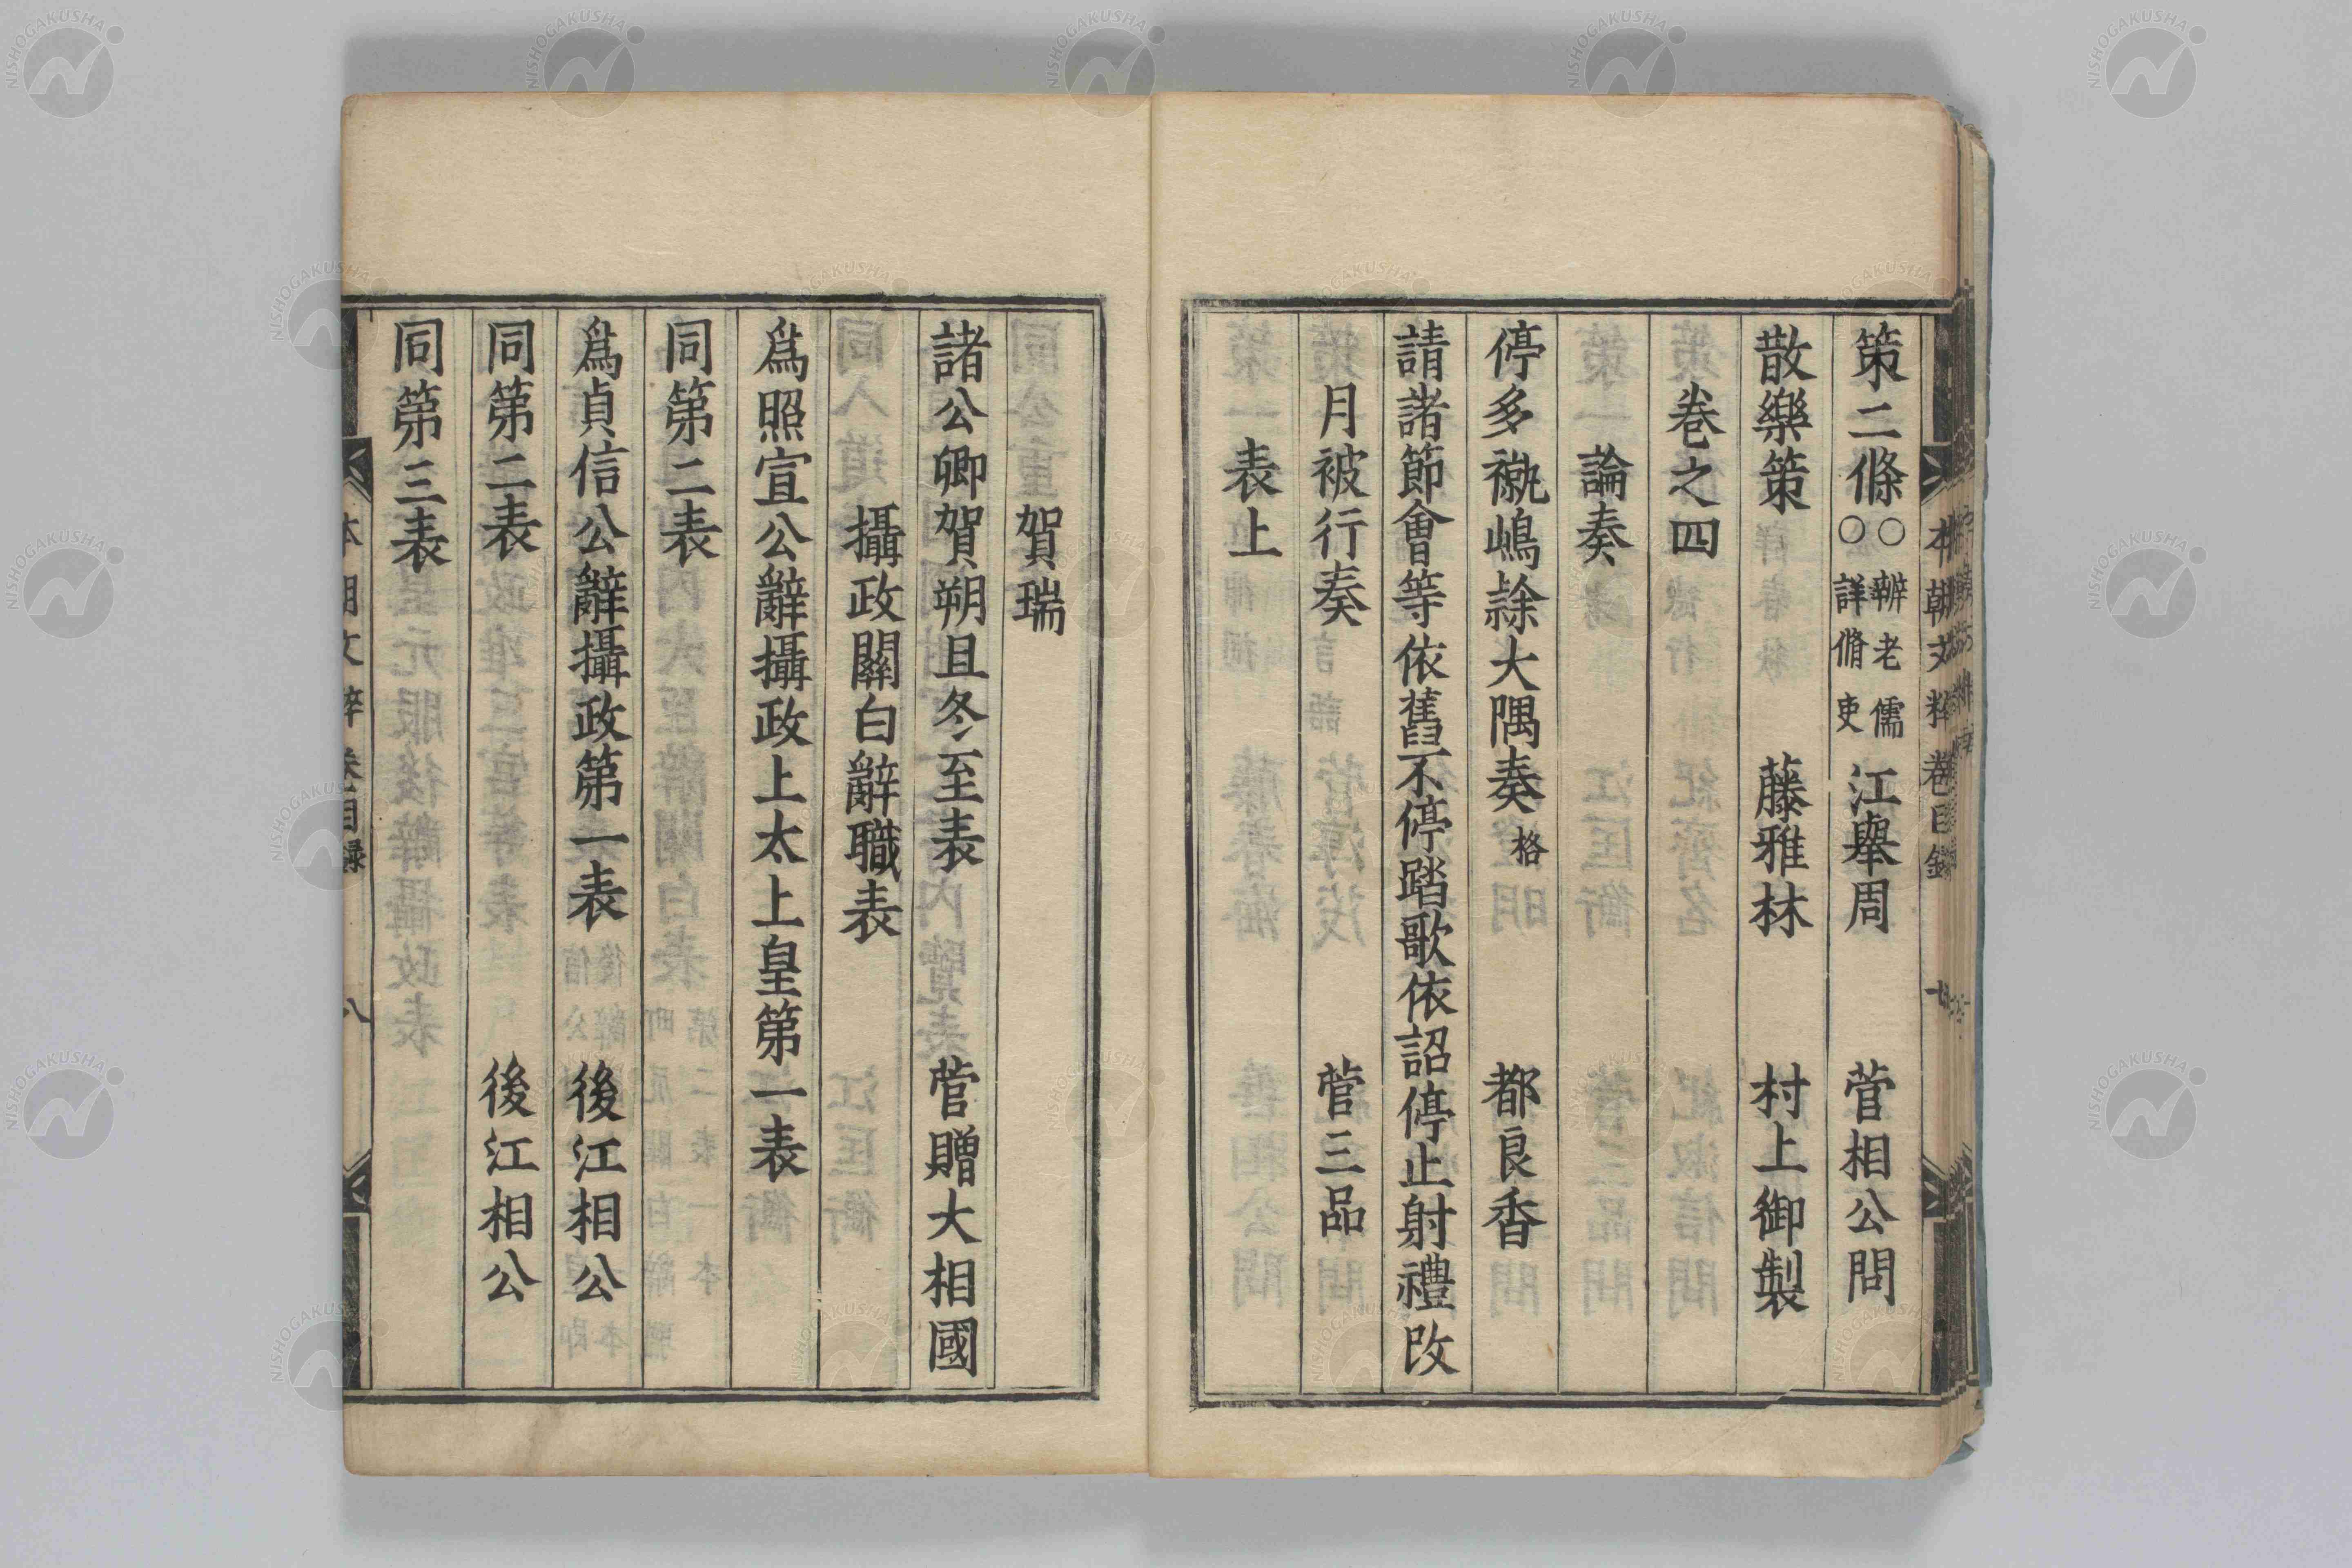 策二條 ○辨老儒 ○詳脩吏 江舉周 菅相公問
散樂策 藤雅材 村上御製
巻之四
論奏
停多褹嶋隷大隅奏 格 都良香
請諸節會等依舊不停踏歌依詔停止射禮改
月被行奏 菅三品
表上
本朝文粹巻目録 七
賀瑞
諸公卿賀朔旦冬至表 菅贈大相國
攝政關白辭職表
爲照宣公辭攝政上太上皇第一表
同第二表
爲貞信公辭攝政第一表 後江相公
同第二表 後江相公
同第三表
本朝文粹巻目録 八
NISHOGAKUSHA